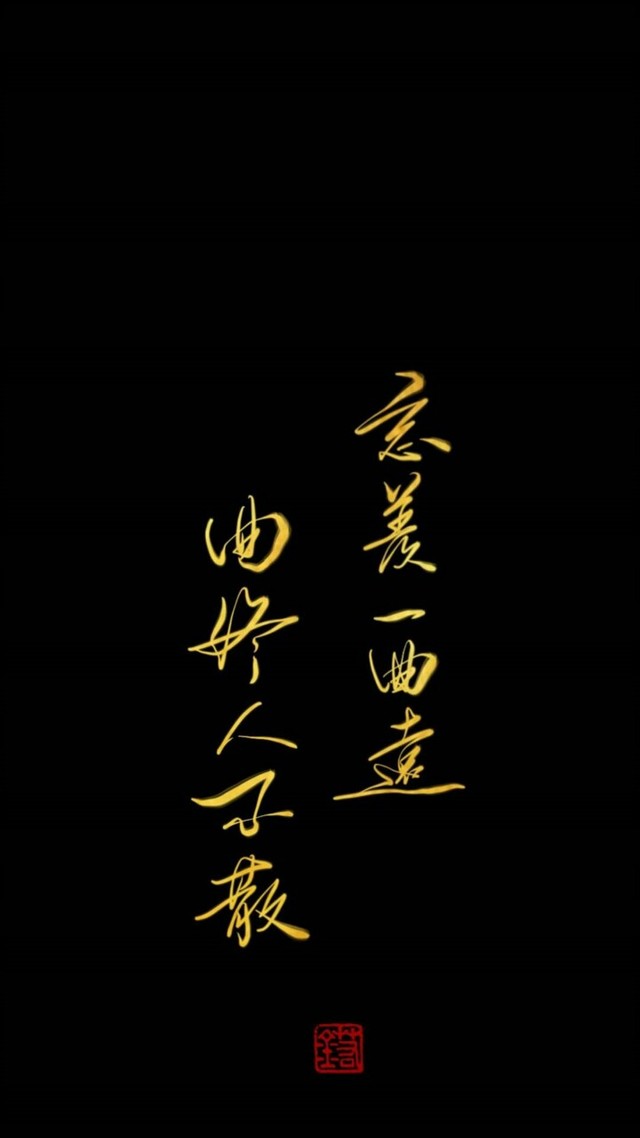 忘羡一曲遠
曲终人不散